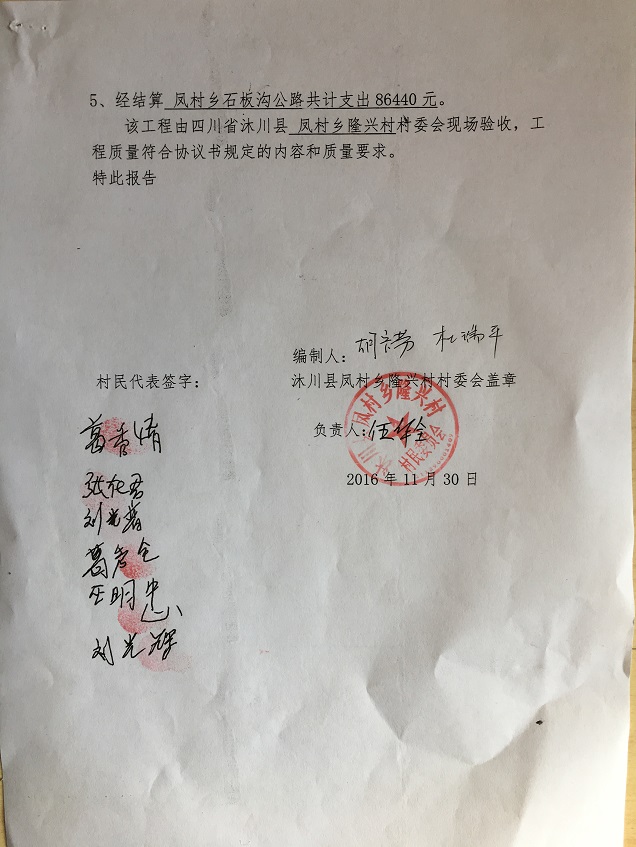 5、经结算 凤村乡石板沟公路共计支出86440元。
该工程由四川省沐川县 凤村乡隆兴村村委会现场验收，工
程质量符合协议书规定的内容和质量要求。
特此报告
编制人： 杜瑞平
村民代表签字： 沐川县凤村乡隆兴村村委会盖章
负责人：伍华全
凤村乡隆兴村
村民委员会
2016年11月30日
刘光辉